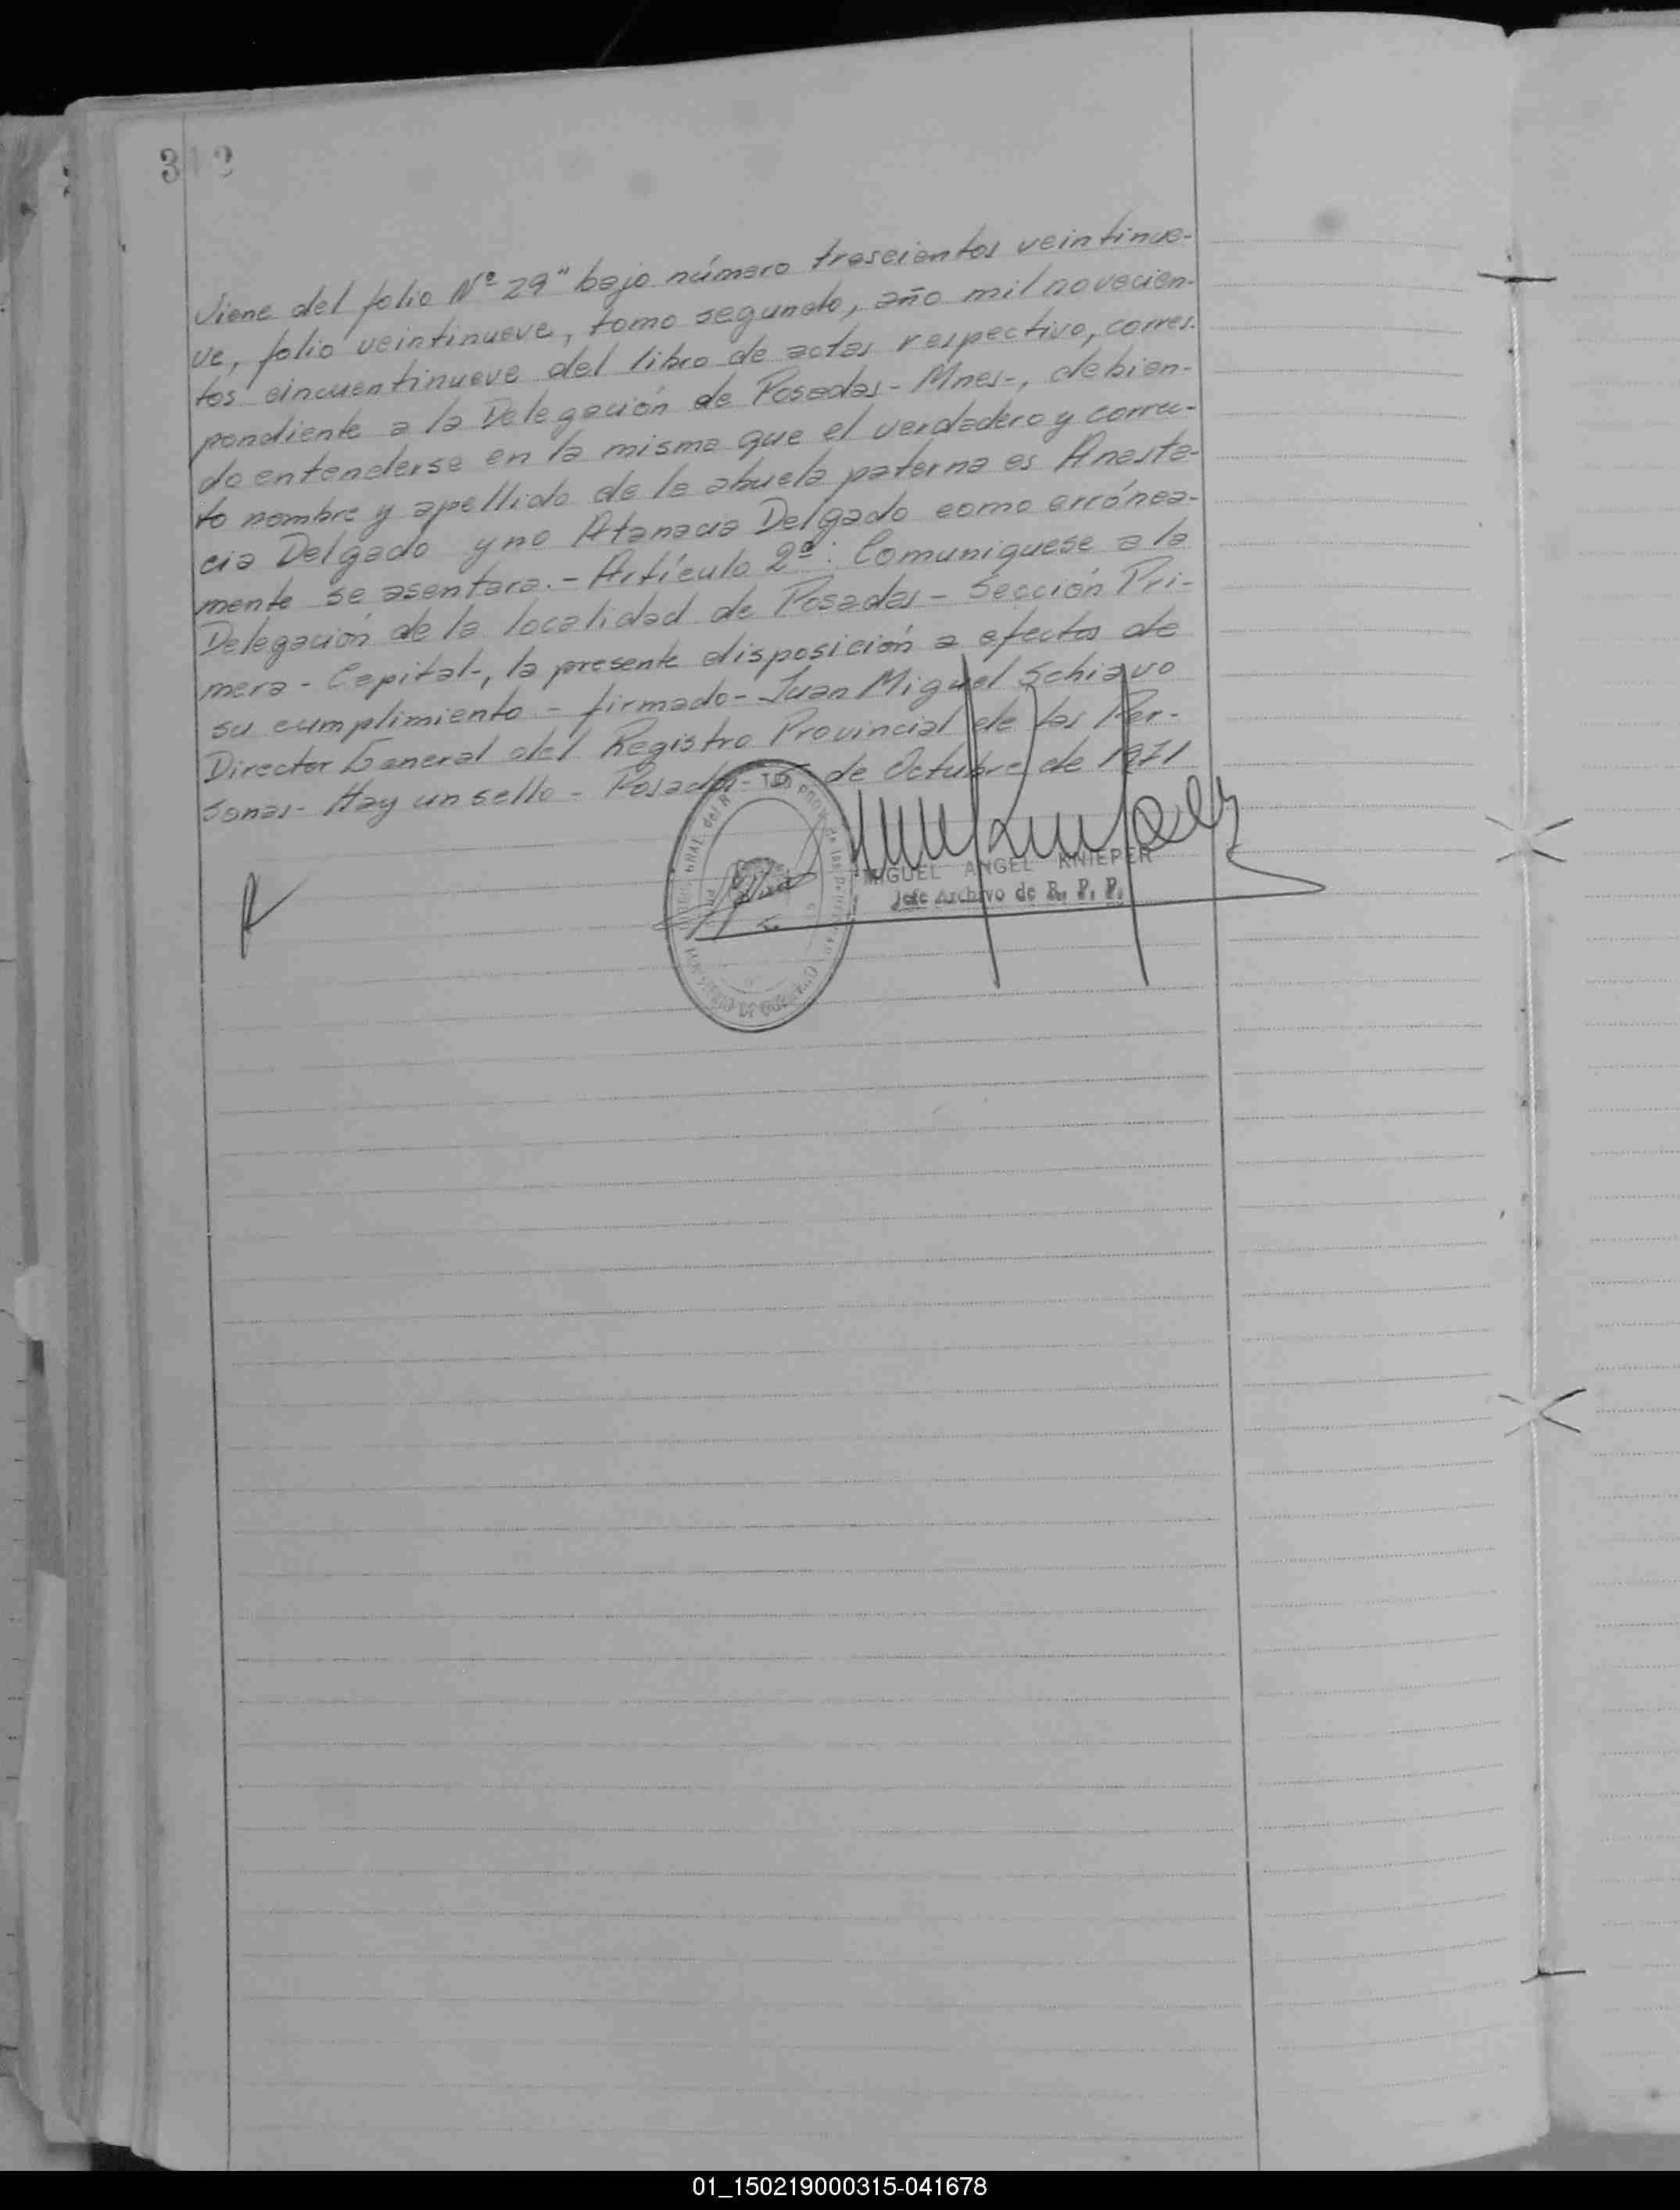 312
Viene del folio Nº 29" bajo número trescientos veintinue-
ve, folio veintinueve, tomo segundo, año mil novecien-
tos cincuentinueve del libro de actas respectivo, corres-
pondiente a la Delegación de Posadas - Mnes-, debien-
do entenderse en la misma que el verdadero y correc-
to nombre y apellido de la abuela paterna es Anasta-
cia Delgado y no Atanacia Delgado como errónea-
mente se asentara. - Artículo 2º: Comuniquese a la
Delegación de la localidad de Posadas - Sección Pri-
mera - Capital-, la presente disposición a efectos de
su cumplimiento - firmado - Juan Miguel Schiavo
Director General del Registro Provincial de las Per-
sonas - Hay un sello - Posadas - de Octubre de 1971
MIGUEL ANGEL KNIEPER
Jefe Archivo de R. P. P.
01_150219000315-041678